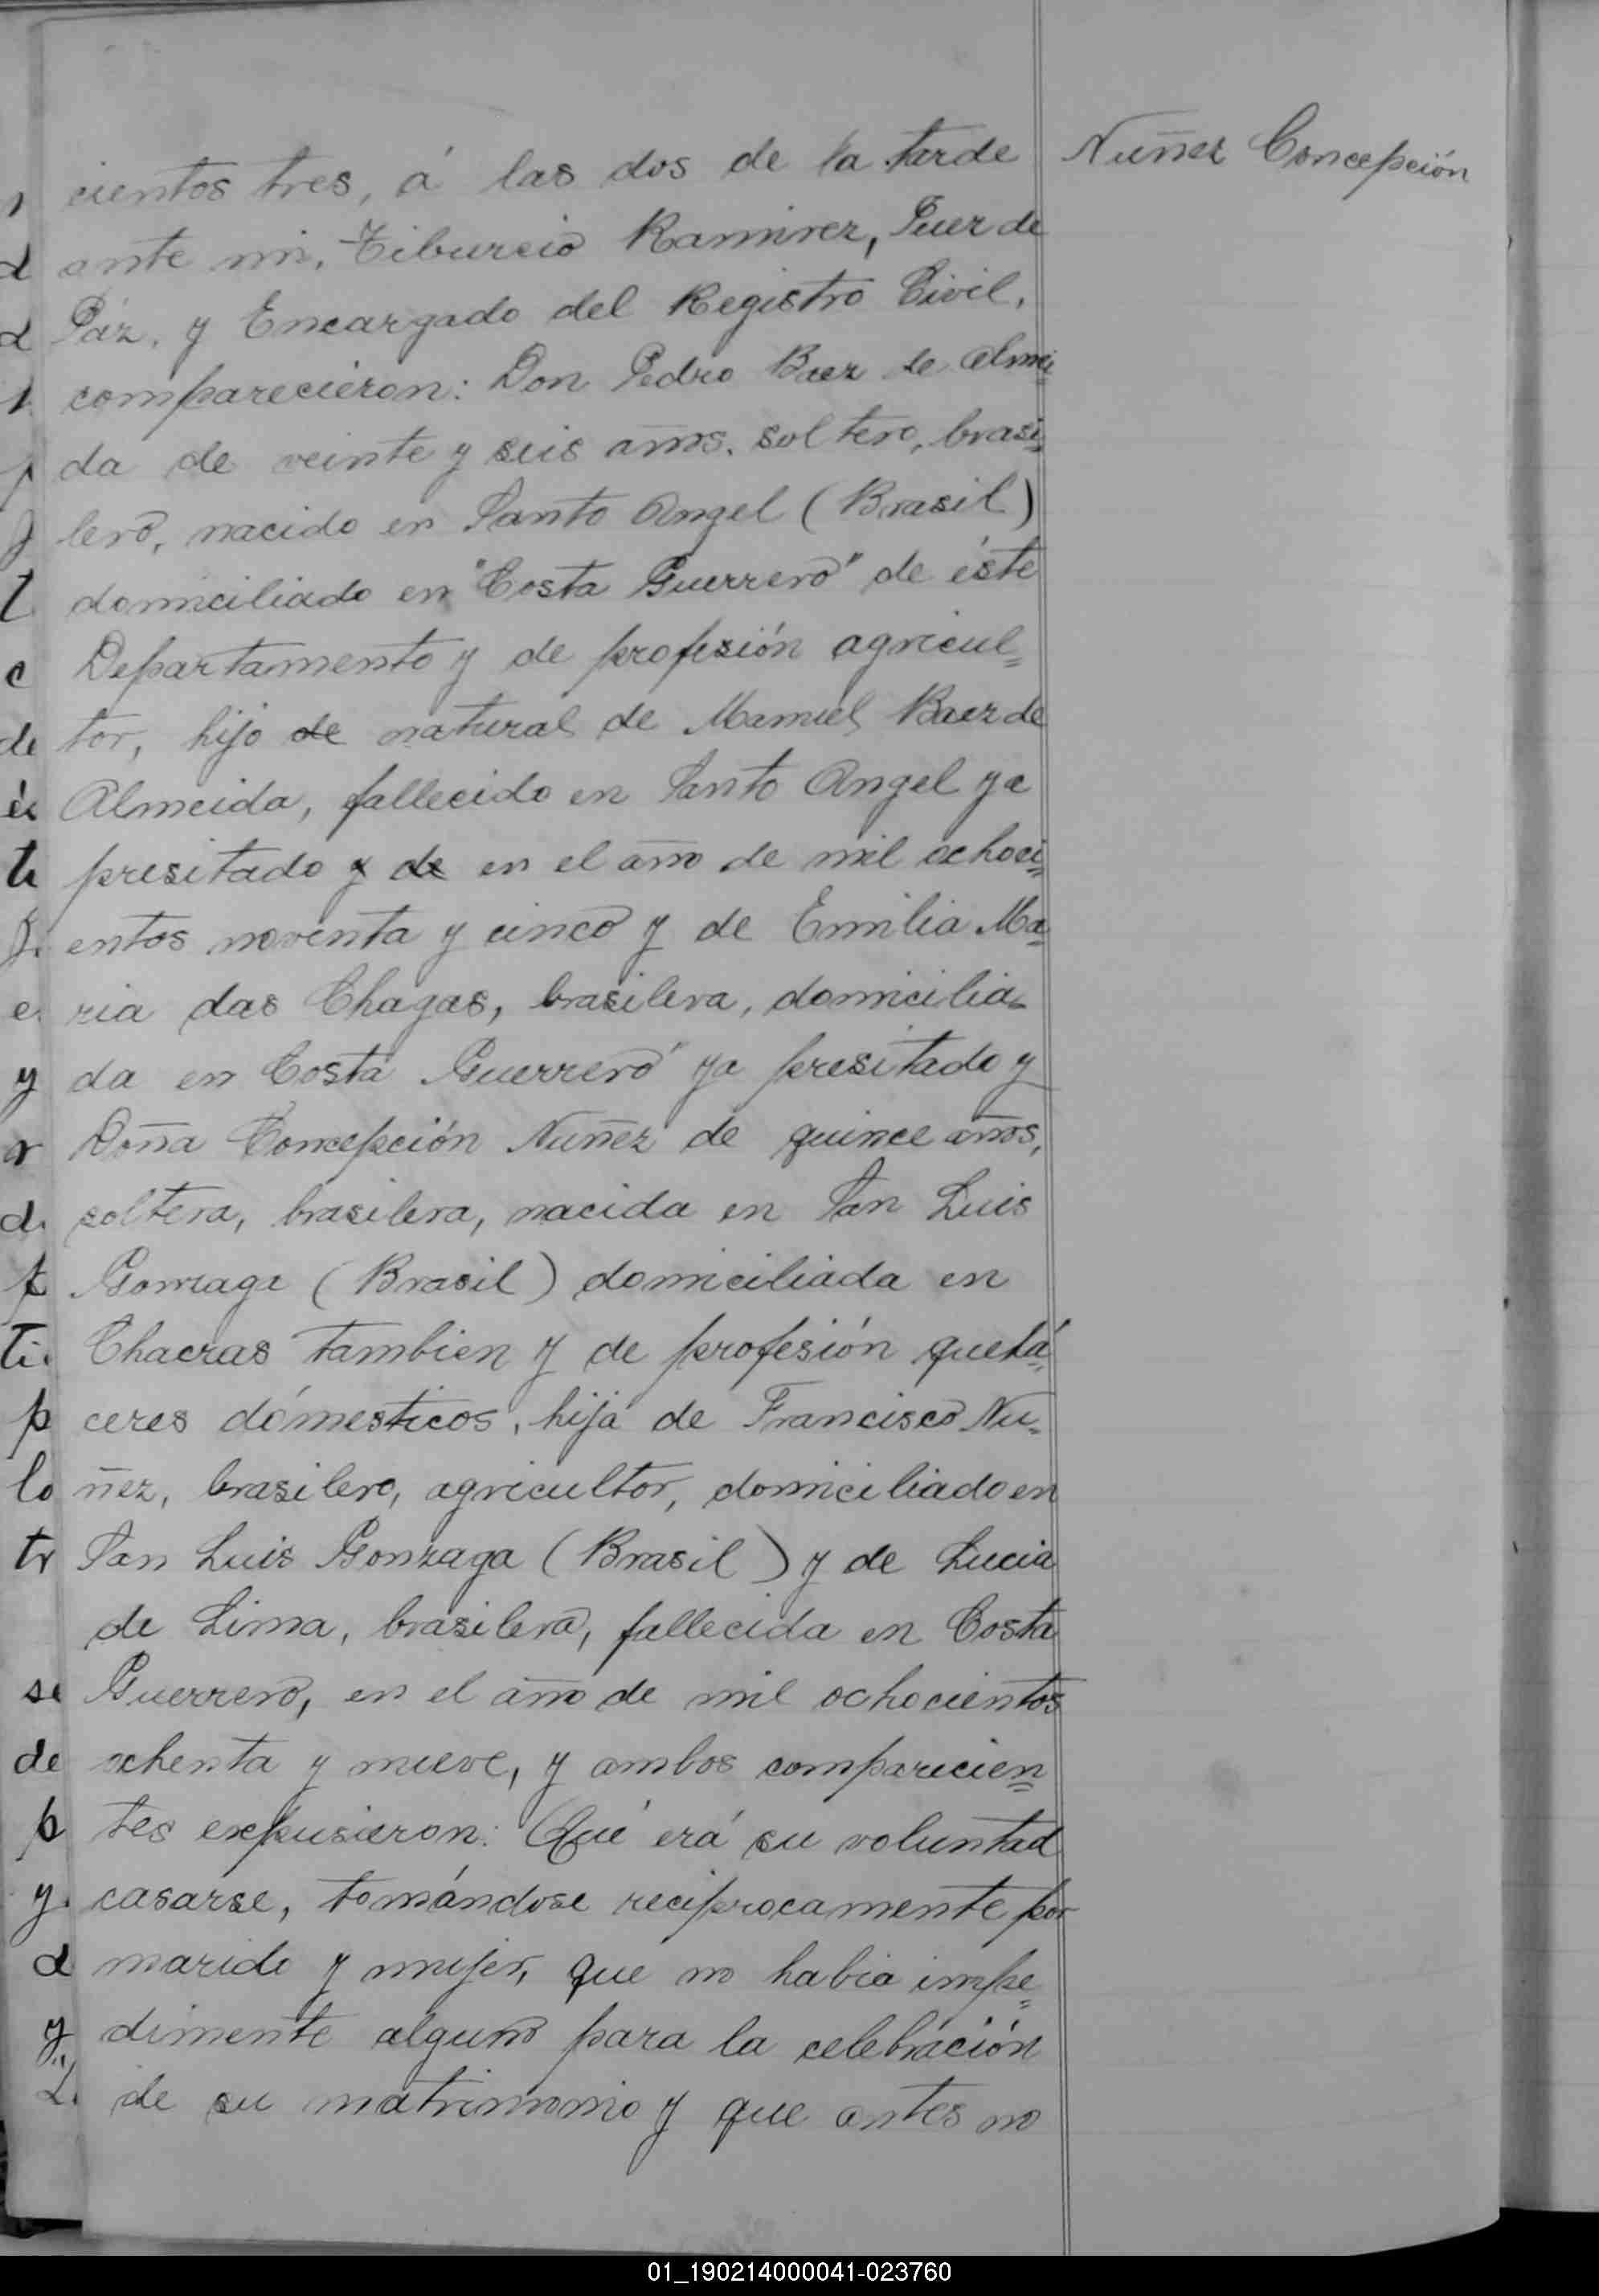 cientos tres, á las dos de la tarde
Nuñez Concepción
ante mi, Tiburcio Ramirez, Juez de
Páz, y Encargado del Registro Civil,
comparecieron: Don Pedro Baez de Almei=
da de veinte y seis años, soltero, brasi=
lero, nacido en Santo Angel (Brasil)
domiciliado en "Costa Guerrero" de éste
Departamento y de profesión agricul=
tor, hijo de natural de Manuel Baez de
Almeida, fallecido en Santo Angel ya
presitado y de en el año de mil ochoci=
entos noventa y cinco y de Emilia Ma=
ria das Chagas, brasilera, domicilia=
da en Costa Guerrero" ya presitado y
Doña Concepción Nuñez de quince años,
soltera, brasilera, nacida en San Luis
Gonzaga (Brasil) domiciliada en
Chacras tambien y de profesión quehá=
ceres dómesticos, hija de Francisco Nu=
ñez, brasilero, agricultor, domiciliado en
San Luis Gonzaga (Brasil) y de Lucia
de Lima, brasilera, fallecida en Costa
Guerrero, en el año de mil ochocientos
ochenta y nueve, y ambos comparecien=
tes expusieron: Qué erá su voluntad
casarse, tomándose reciprocamente por
marido y mujer, que no habia impe=
dimente alguno para la celebración
de su matrimonio y que antes no
01_190214000041-023760